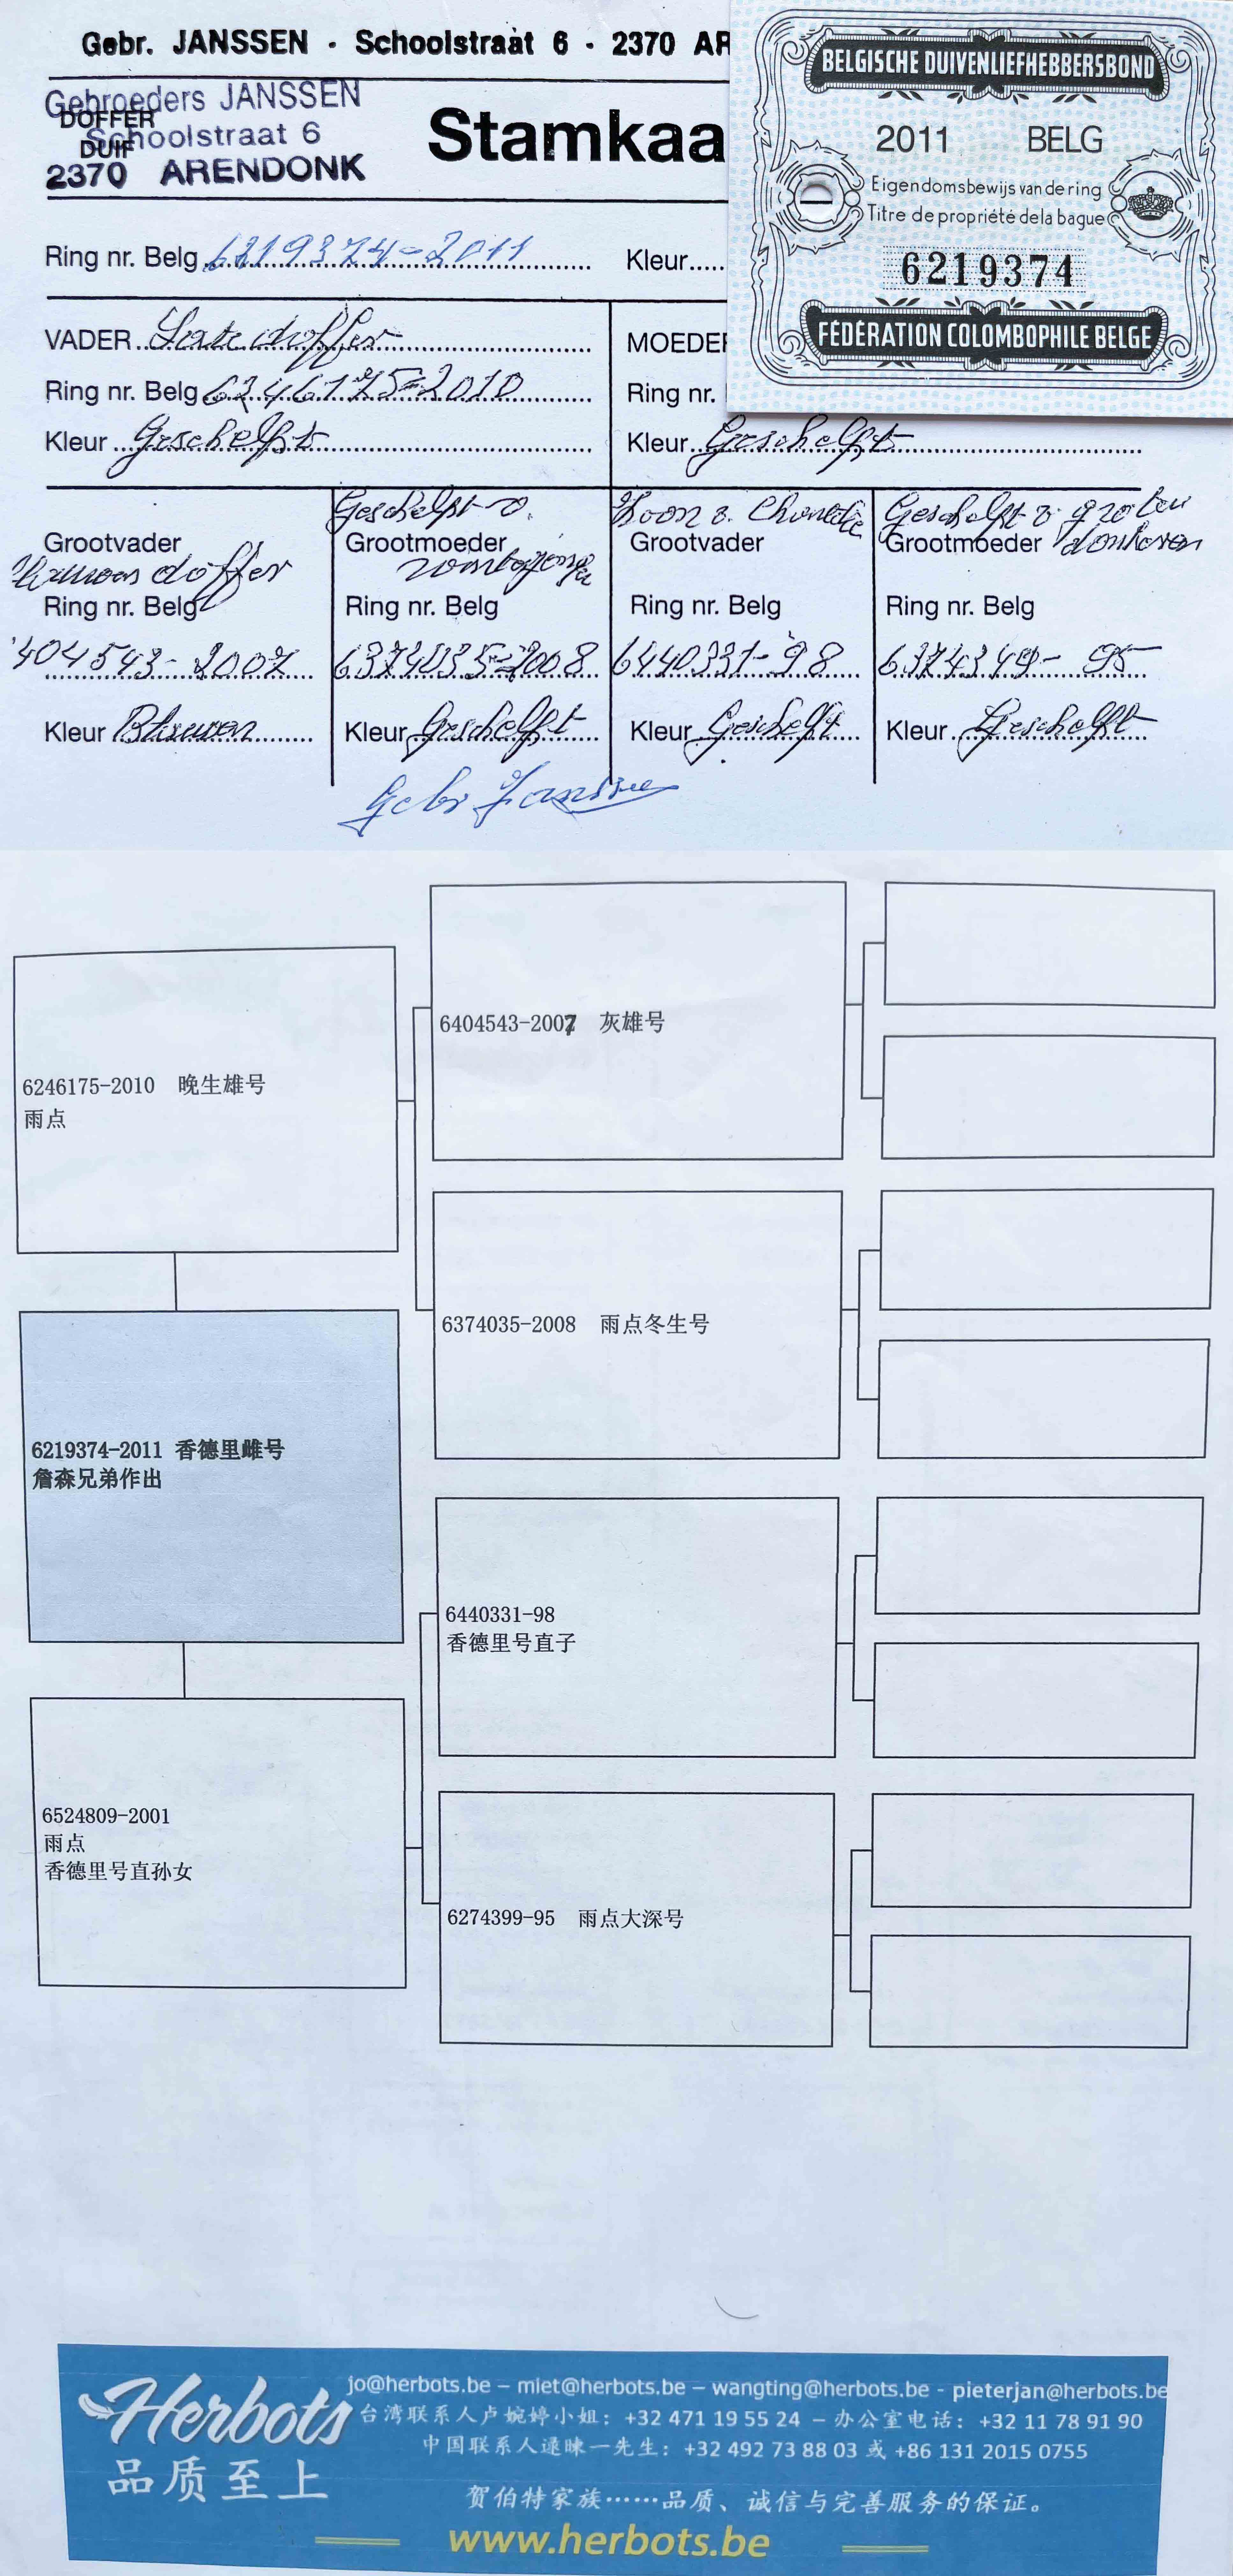 Gebr. JANSSEN - Schoolstraat 6 - 2370 AR
Gebroeders JANSSEN
DOFFER
Schoolstraat 6
DUIF
2370 ARENDONK
Stamkaa
BELGISCHE DUIVENLIEFHEBBERSBOND
2011 BELG
Eigendomsbewijs van de ring
Titre de propriété de la bague
6219374
FÉDÉRATION COLOMBOPHILE BELGE
Ring nr. Belg 6219374-2011 Kleur
VADER Late doffer MOEDER
Ring nr. Belg 6246175-2010 Ring nr.
Kleur Geschelpt Kleur Geschelpt
Geschelpt Zoon v. Geschelpt v. groten donkeren
Grootvader Grootmoeder Grootvader Grootmoeder
Blauwen doffer
Ring nr. Belg Ring nr. Belg Ring nr. Belg Ring nr. Belg
404543-2007 6374035-2008 6440331-98 -95
Kleur Blauwen Kleur Geschelpt Kleur Geschelpt Kleur Geschelpt
Gebr Janssen
6404543-2007 灰雄号
6246175-2010 晚生雄号
雨点
6374035-2008 雨点冬生号
6219374-2011 香德里雌号
詹森兄弟作出
6440331-98
香德里号直子
6524809-2001
雨点
香德里号直孙女
6274399-95 雨点大深号
Herbots
品质至上
jo@herbots.be – miet@herbots.be – wangting@herbots.be - pieterjan@herbots.be
台湾联系人卢婉婷小姐: +32 471 19 55 24 – 办公室电话: +32 11 78 91 90
中国联系人逯昧一先生: +32 492 73 88 03 或 +86 131 2015 0755
贺伯特家族……品质、诚信与完善服务的保证。
www.herbots.be